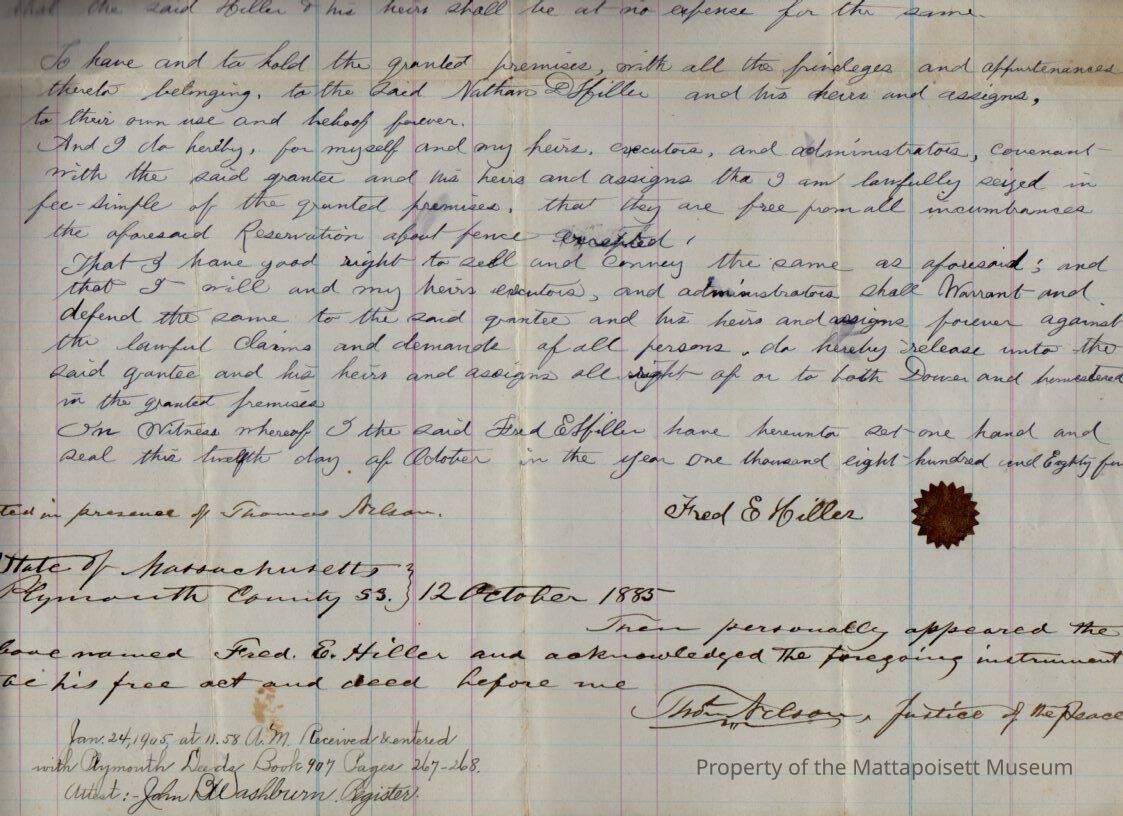 that the said Hiller & his heirs shall be at no expence for the same.
To have and to hold the granted premises, with all the priveleges and appurtenances
thereto belonging, to the said Nathan D Hiller and his heirs and assigns,
to their own use and behoof forever.
And I do hereby, for myself and my heirs, executors, and administrators, covenant
with the said grantee and his heirs and assigns tha I am lawfully seized in
fee-simple of the granted premises, that they are free from all incumbrances
the aforesaid Reservation about fence excepted,
That I have good right to sell and convey the same as aforesaid; and
that I will and my heirs executors, and administrators shall Warrant and
defend the same to the said grantee and his heirs and assigns forever against
the lawful Claims and demands of all persons, do hereby release unto the
said grantee and his heirs and assigns all right of or to both Dower and homestead
in the granted premises
In Witness whereof I the said Fred E Hiller have hereunto set one hand and
seal this twelfth day of October in the year one thousand eight hundred and Eighty
ted in presence of Thomas Nelson.
Fred E Hiller
State of Massachusetts }
Plymouth County SS. } 12 October 1885
Then personally appeared the
bove named Fred. E. Hiller and acknowledged the foregoing instrument
his free act and deed before me
Thos Nelson, Justice of the Peace
Jan. 24, 1905, at 11.58 A.M. Received & entered
with Plymouth Deeds Book 907 Pages 267-268.
Attest:- John B Washburn Register.
Property of the Mattapoisett Museum